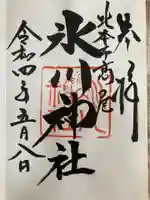 奉拝
北本高尾
氷川神社
令和四年五月八日